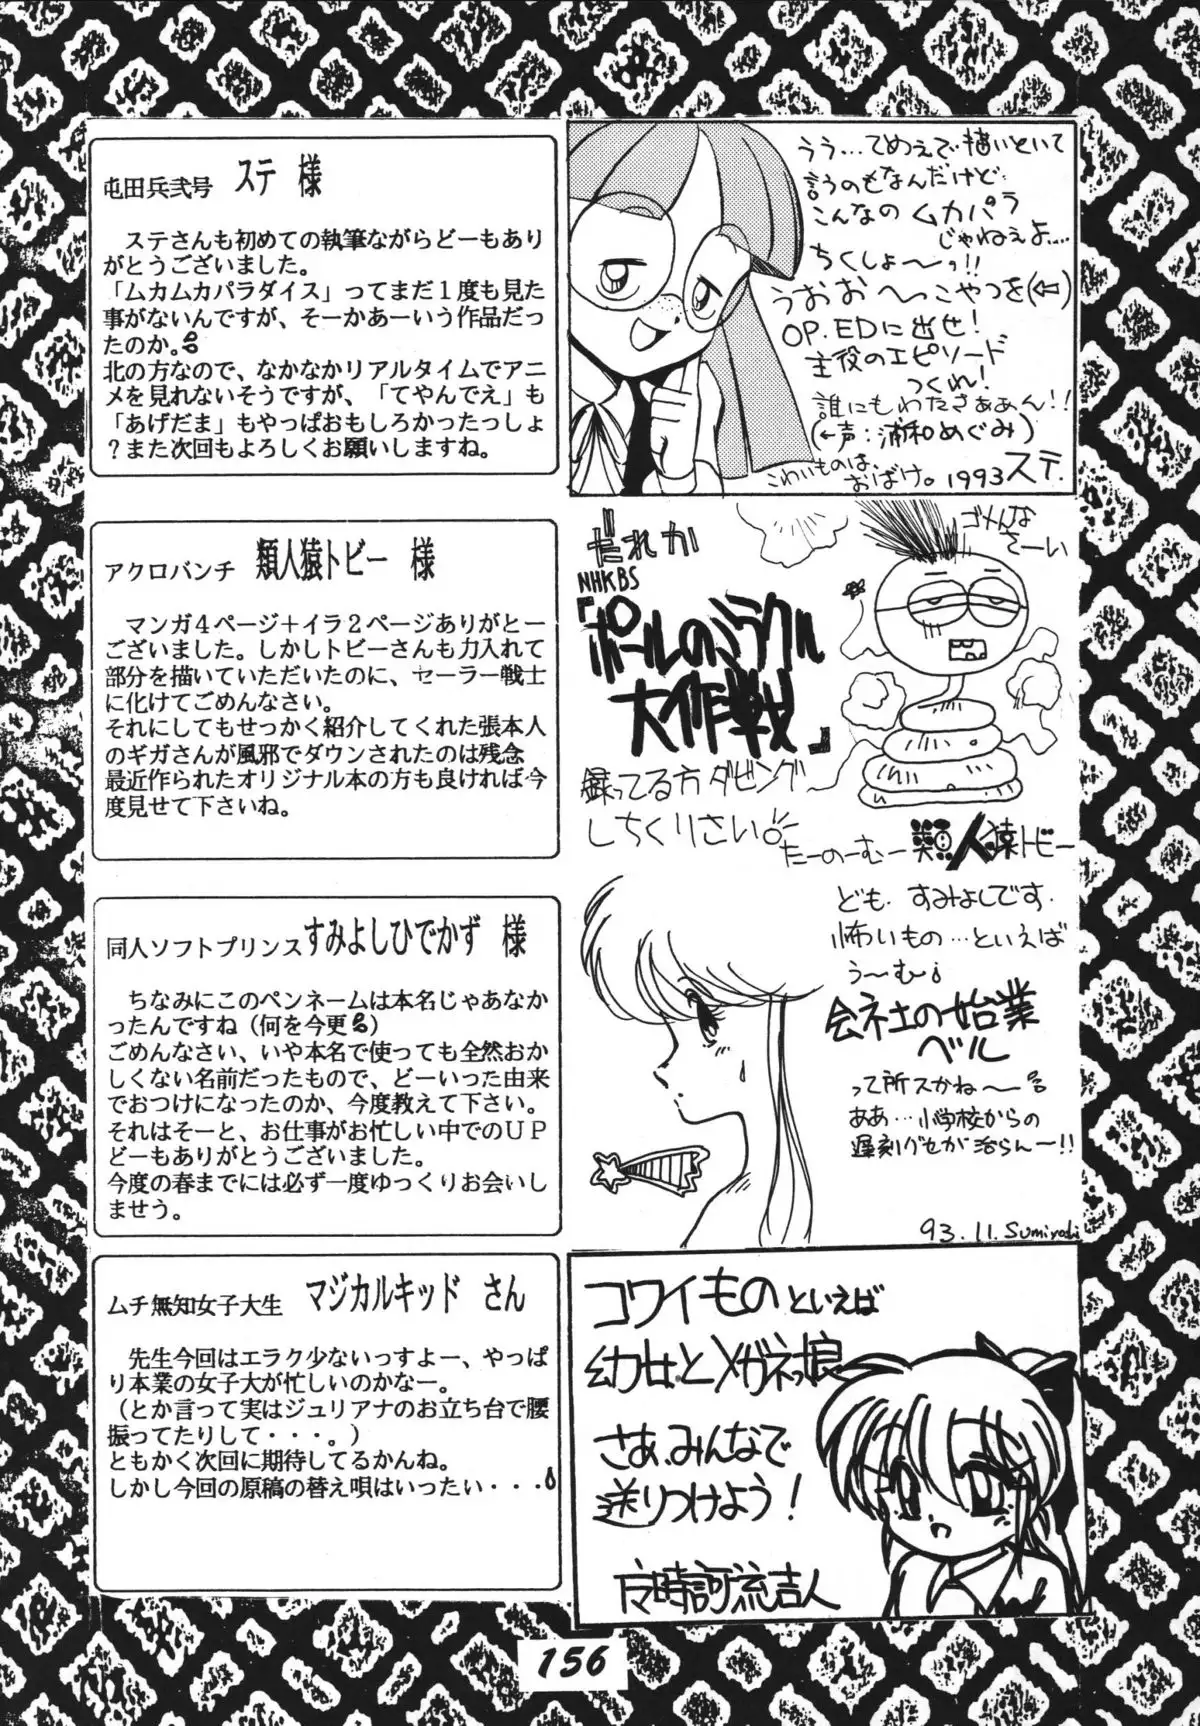 屯田兵弐号 ステ 様
ステさんも初めての執筆ながらどーもあり
がとうございました。
「ムカムカパラダイス」ってまだ１度も見た
事がないんですが、そーかあーいう作品だっ
たのか。
北の方なので、なかなかリアルタイムでアニ
メを見れないそうですが、「てやんでえ」も
「あげだま」もやっぱおもしろかったっしょ
？また次回もよろしくお願いしますね。
うう…てめえで描いといて
言うのもなんだけど
こんなの ムカパラ
じゃねぇよ……
ちくしょ〜〜っ!!
うおお〜〜っこやつを(⇦)
OP.EDに出せ!
主役のエピソード
つくれ!
誰にもわたさぁぁん!!
(←声:浦和めぐみ)
こわいものは、
おばけ。1993 ステ.
アクロバンチ 類人猿トビー 様
マンガ４ページ＋イラ２ページありがとー
ございました。しかしトビーさんも力入れて
部分を描いていただいたのに、セーラー戦士
に化けてごめんなさい。
それにしてもせっかく紹介してくれた張本人
のギガさんが風邪でダウンされたのは残念
最近作られたオリジナル本の方も良ければ今
度見せて下さいね。
だれか
NHKBS
『ポールのミラクル
大作戦』
録ってる方ダビング
しちくりさい。
たーのーむー 類人猿トビー
ゴメんな
さーい
同人ソフトプリンス すみよしひでかず 様
ちなみにこのペンネームは本名じゃあなか
ったんですね（何を今更）
ごめんなさい、いや本名で使っても全然おか
しくない名前だったもので、どーいった由来
でおつけになったのか、今度教えて下さい。
それはそーと、お仕事がお忙しい中でのＵＰ
どーもありがとうございました。
今度の春までには必ず一度ゆっくりお会いし
ませう。
ども、すみよしです.
怖いもの…といえば
う〜む
会社の始業
ベル
って所スかね〜
ああ…小学校からの
遅刻グセが治らん〜!!
93.11.Sumiyoshi
ムチ無知女子大生 マジカルキッド さん
先生今回はエラク少ないっすよー、やっぱ
り本業の女子大が忙しいのかなー。
（とか言って実はジュリアナのお立ち台で腰
振ってたりして・・・。）
ともかく次回に期待してるかんね。
しかし今回の原稿の替え唄はいったい・・・
コワイもの といえば
幼女とメガネっ娘
さぁ、みんなで
送りつけよう!
156